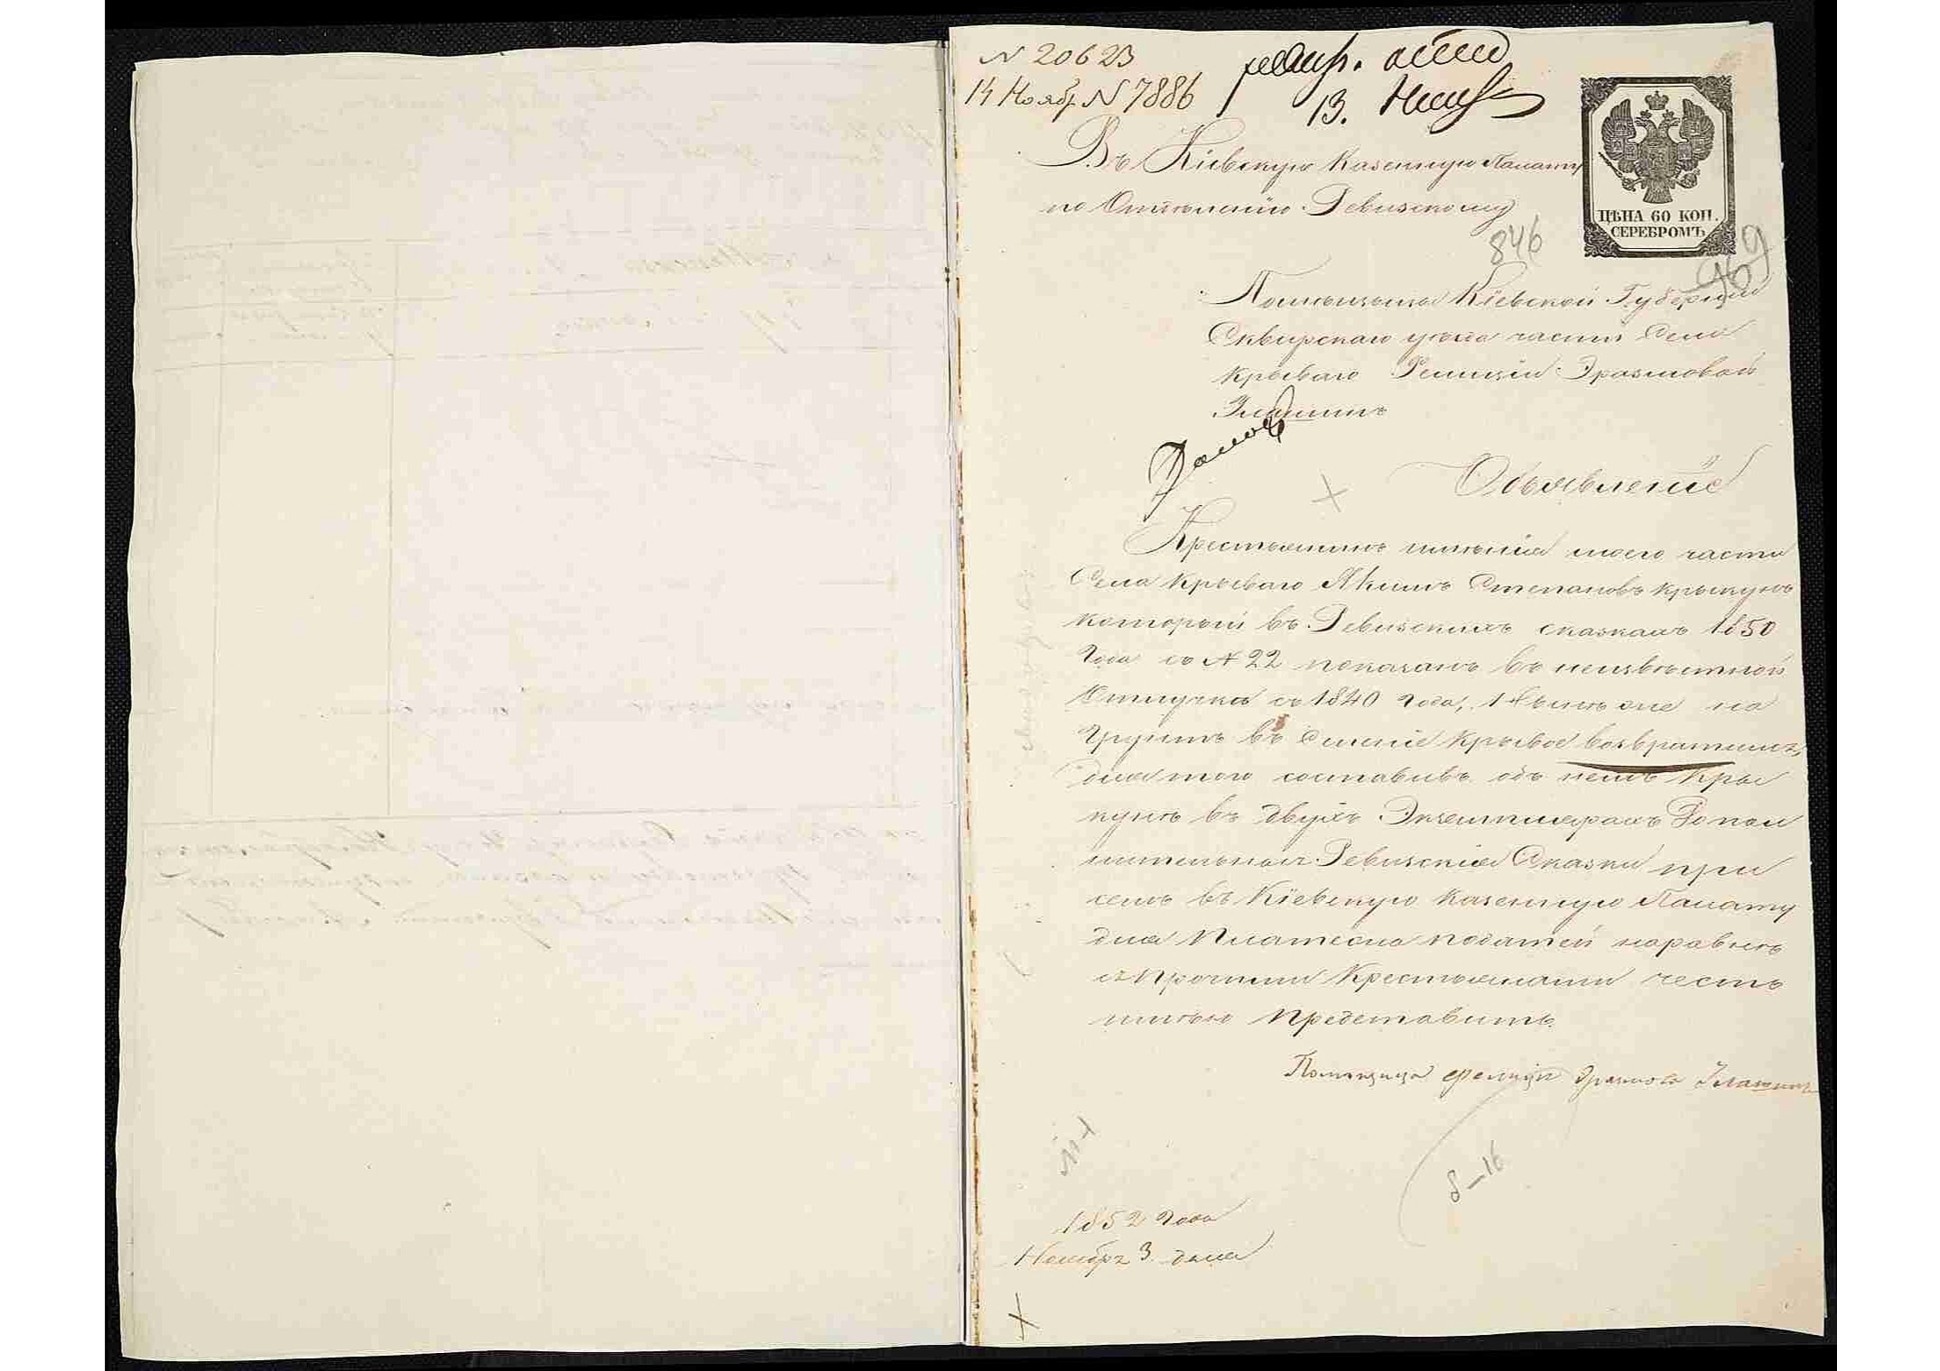 N 20623
14 Ноябр N 7886
13.
Въ Кіевскую Казенную Палату
по Отдѣленію Ревизскому
846
ЦѢНА 60 КОП.
СЕРЕБРОМЪ
969
Помѣщицы Кіевской Губерніи
Сквирскаго уѣзда части Села
Крываго Фелиціи Эразмовой
Объявленіе
Крестьянинъ имѣнія моего части
Села Крываго Якимъ Степановъ Крыкунъ
который въ Ревизскихъ сказкахъ 1850
Года съ N 22 показанъ въ неизвѣстной
Отлучкѣ съ 1840 года, Нынѣ же на
Грунтъ въ селеніе Крывое возвратился,
для того составивъ объ немъ Кры
кунѣ въ двухъ Экземплярахъ Допол
нительныя Ревизскія Сказки при
семъ въ Кіевскую Казенную Палату
для Платежа податей наравнѣ
съ Прочими Крестьянами честь
имѣю Представить.
Помѣщица Фелиція Эразмова
8-16
1852 Года
Ноябрь 3 дня